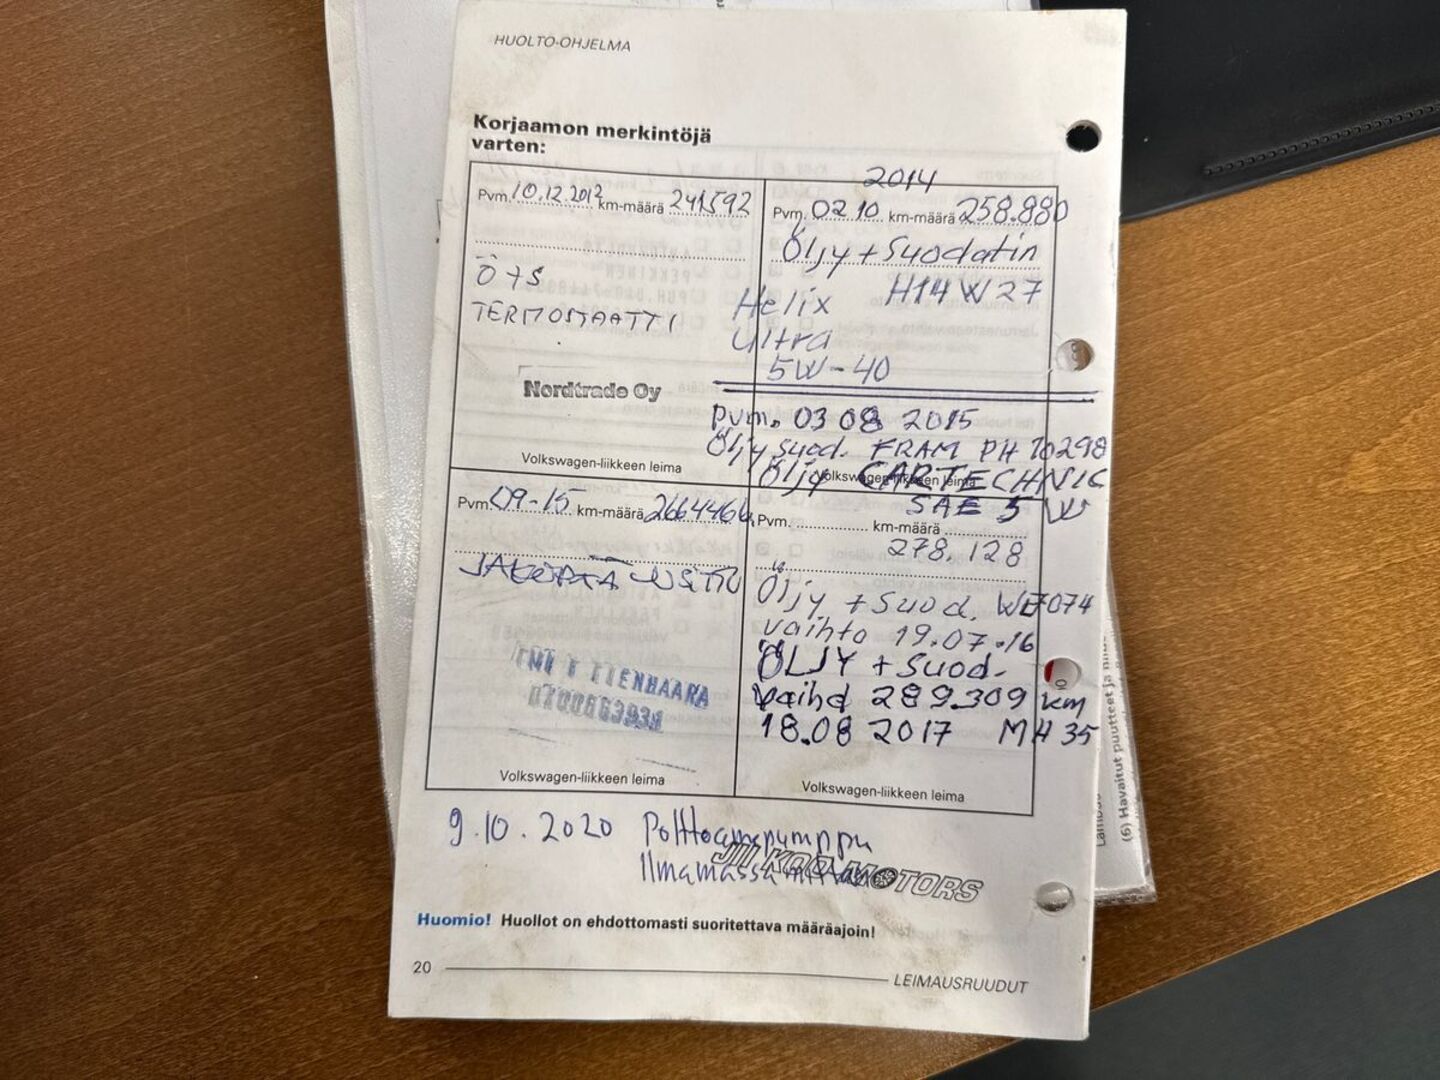 HUOLTO-OHJELMA
Korjaamon merkintöjä
varten:
Pvm. 10.12.2012 km-määrä 241592
Ö+S
TERMOSTAATTI
Nordtrade Oy
Volkswagen-liikkeen leima
2014
Pvm. 02 10 km-määrä 258.880
Öljy + Suodatin
H14 W27
Helix
Ultra
5W-40
pvm. 03 08 2015
Öljy suod. FRAM PH 10298
Öljy CARTECHNIC
Volkswagen-liikkeen leima
SAE 5 W
Pvm. 09-15 km-määrä
Volkswagen-liikkeen leima
Pvm. km-määrä
278.128
Öljy + Suod. WE7074
vaihto 19.07.16
ÖLJY + Suod-
vaihd 289.309 km
18.08 2017 MH 35
Volkswagen-liikkeen leima
9.10.2020 Polttoainepumppu
Ilmamassamittari
MOTORS
Huomio! Huollot on ehdottomasti suoritettava määräajoin!
20
LEIMAUSRUUDUT
(6) Havaitut puutteet ja